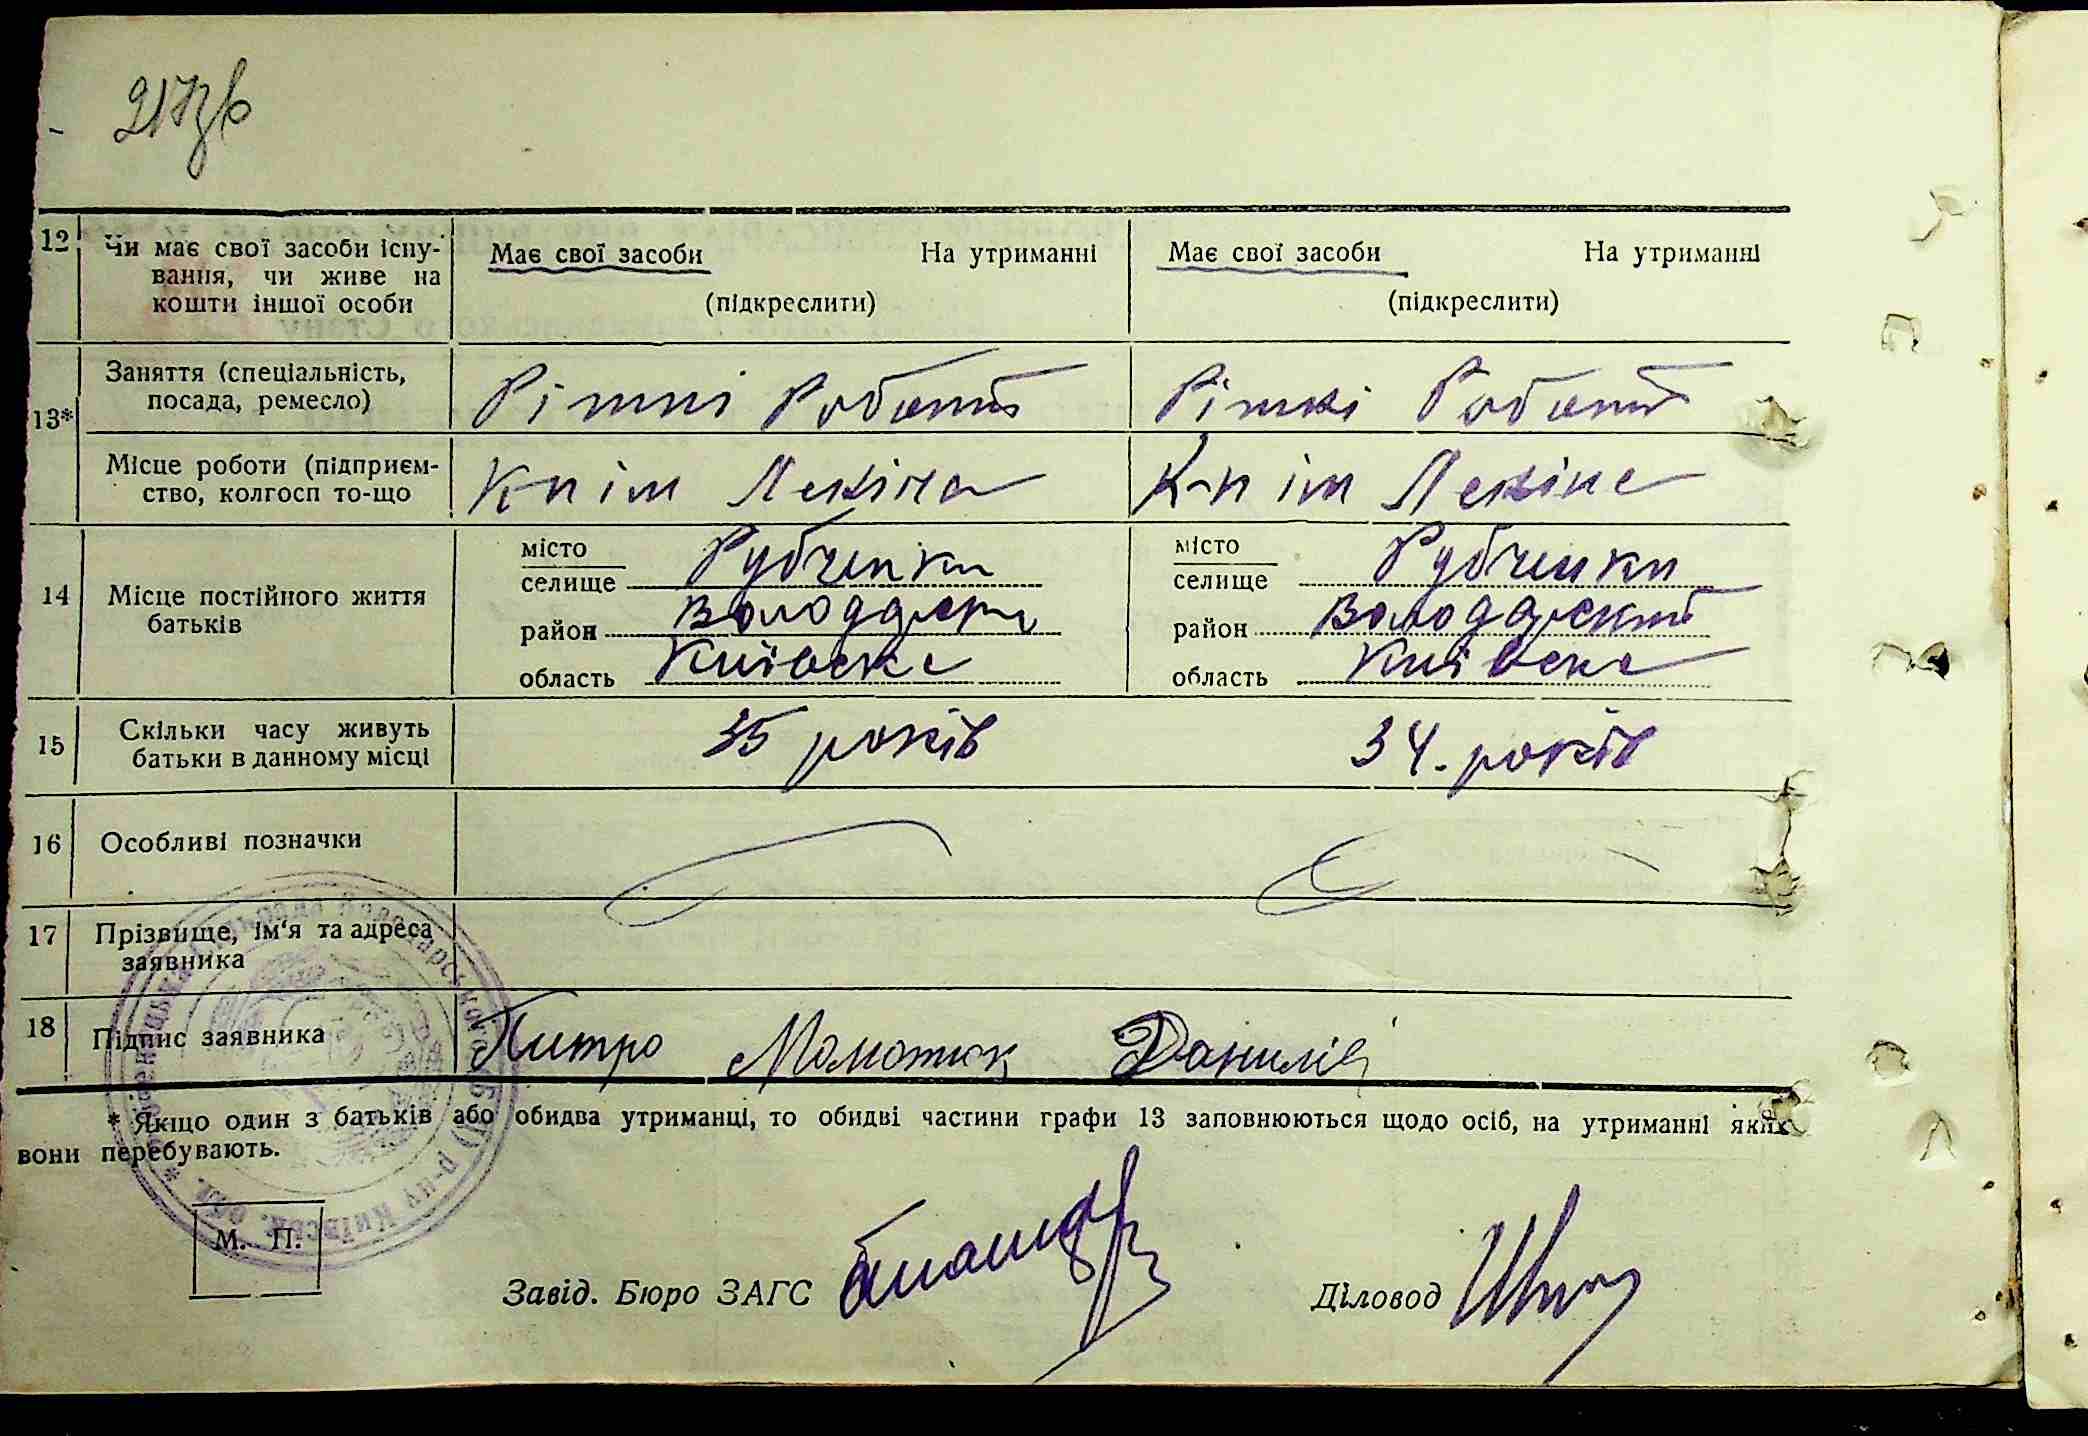 217зв
12 Чи має свої засоби існу-
вання, чи живе на
кошти іншої особи
Має свої засоби На утриманні
(підкреслити)
Має свої засоби На утриманні
(підкреслити)
13*
Заняття (спеціальність,
посада, ремесло)
Рітні Роботи
Рітні Роботи
Місце роботи (підприєм-
ство, колгосп то-що
К-п ім Леніна
К-п ім Леніна
14 Місце постійного життя
батьків
місто
селище Рубченки
район Володарськ
область Київська
місто
селище Рубченки
район Володарский
область Київська
15 Скільки часу живуть
батьки в данному місці
35 років
34. років
16 Особливі позначки
17 Прізвище, ім'я та адреса
заявника
18 Підпис заявника
Митро Маматюк Данилів
* Якщо один з батьків або обидва утриманці, то обидві частини графи 13 заповнюються щодо осіб, на утриманні яких
вони перебувають.
М. П.
Завід. Бюро ЗАГС
Діловод
р-ну Київськ. обл.